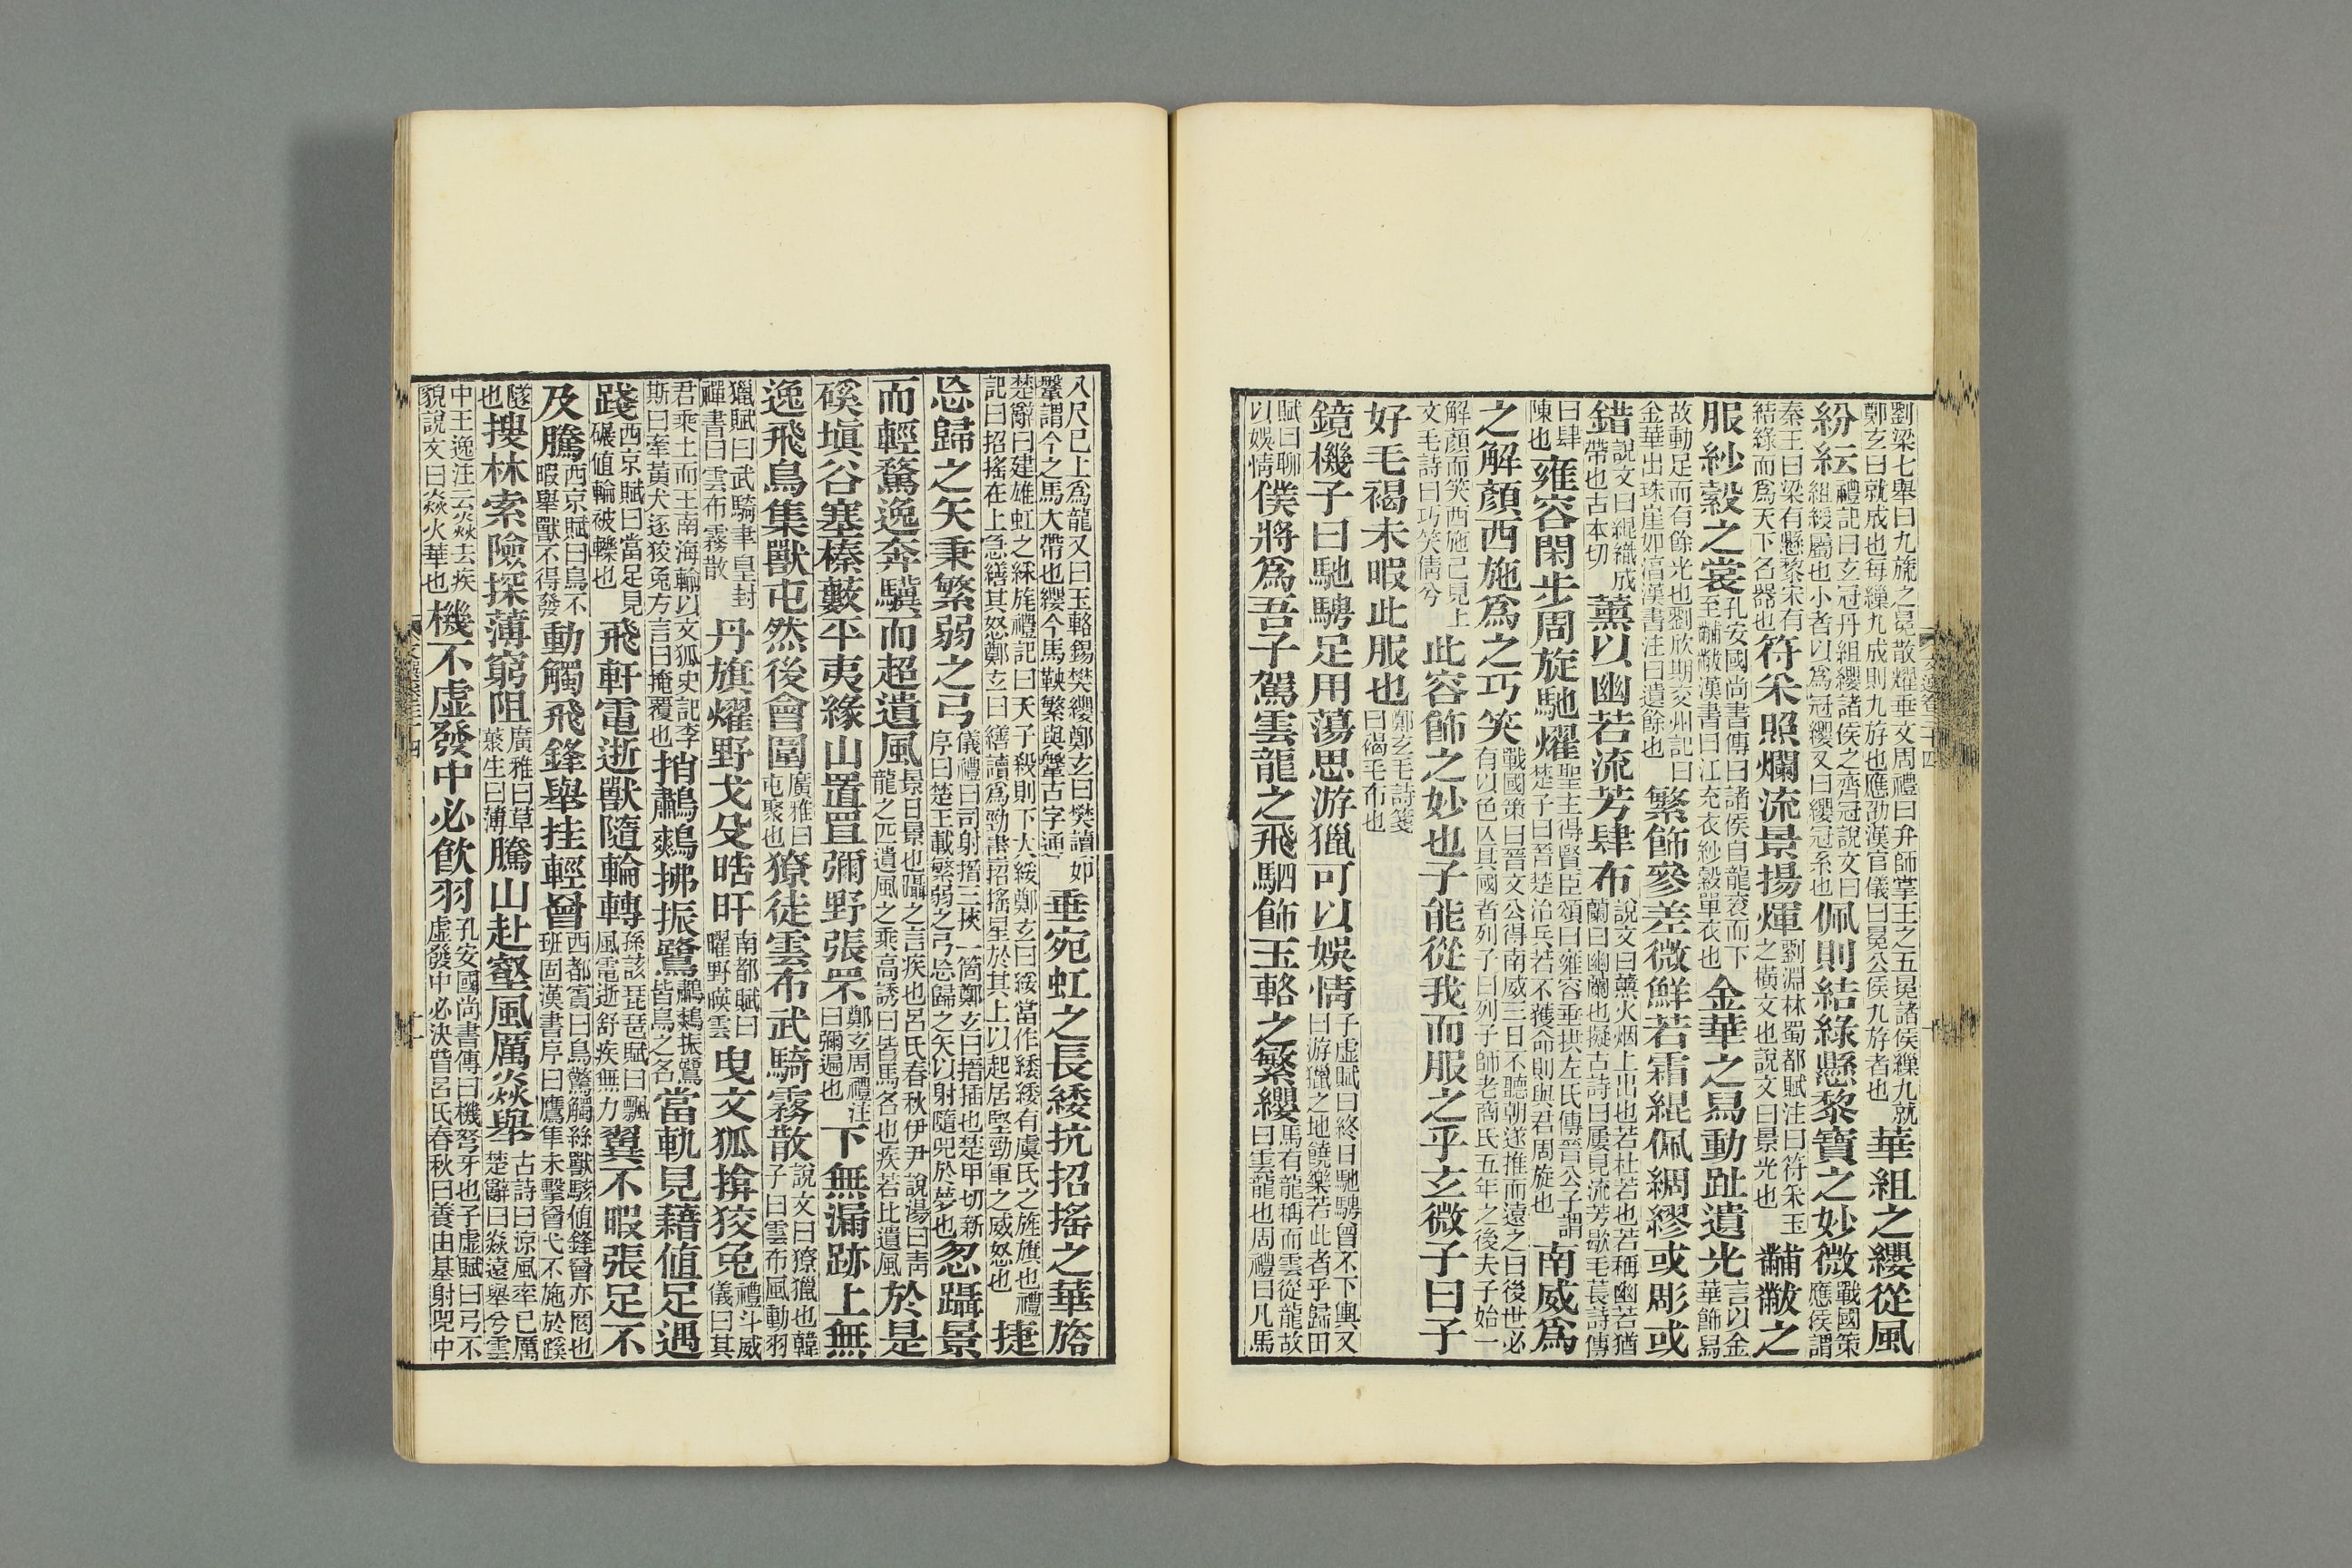 劉梁七舉曰九旒之冕散耀垂文周禮曰弁師掌王之五冕諸侯繅九就鄭玄曰就成也每繅九成則九斿也應劭漢官儀曰冕公侯九斿者也華組之纓從風
紛紜禮記曰玄冠丹組纓諸侯之齊冠說文曰組綬屬也小者以爲冠纓又曰纓冠系也佩則結綠懸黎寶之妙微戰國策應侯謂
秦王曰梁有懸黎宋有結綠而爲天下名器也符采照爛流景揚煇劉淵林蜀都賦注曰符采玉之橫文也說文曰景光也黼黻之
服紗縠之裳孔安國尚書傳曰諸侯自龍衮而下至黼黻漢書曰江充衣紗縠單衣也金華之舄動趾遺光言以金華飾舄
故動足而有餘光也劉欣期交州記曰金華出珠崖如淳漢書注曰遺餘也繁飾參差微鮮若霜緄佩綢繆或彫或
錯說文曰緄織成帶也古本切薰以幽若流芳肆布說文曰薰火烟上出也若杜若也若稱幽若猶蘭曰幽蘭也擬古詩曰屢見流芳歇毛萇詩傳
曰肆陳也雍容閑步周旋馳燿聖主得賢臣頌曰雍容垂拱左氏傳晉公子謂楚子曰晉楚治兵若不獲命則與君周旋也南威爲
之解顏西施爲之巧笑戰國策曰晉文公得南威三日不聽朝遂推而遠之曰後世必有以色亡其國者列子曰列子師老商氏五年之後夫子始一
解顏而笑西施已見上文毛詩曰巧笑倩兮此容飾之妙也子能從我而服之乎玄微子曰子
好毛褐未暇此服也鄭玄毛詩箋曰褐毛布也
鏡機子曰馳騁足用蕩思游獵可以娛情子虛賦曰終日馳騁曾不下輿又曰游獵之地饒樂若此者乎歸田
賦曰聊以娛情僕將爲吾子駕雲龍之飛駟飾玉輅之繁纓馬有龍稱而雲從龍故曰雲龍也周禮曰凡馬
八尺已上爲龍又曰玉輅錫樊纓鄭玄曰樊讀如鞶謂今之馬大帶也纓今馬鞅繁與鞶古字通垂宛虹之長緌抗招搖之華旍
楚辭曰建雄虹之綵旄禮記曰天子殺則下大綏鄭玄曰綏當作緌緌有虞氏之旌旗也禮記曰招搖在上急繕其怒鄭玄曰繕讀爲勁畫招搖星於其上以起居堅勁軍之威怒也捷
忘歸之矢秉繁弱之弓儀禮曰司射搢三挾一箇鄭玄曰搢插也楚甲切新序曰楚王載繁弱之弓忘歸之矢以射隨兕於夢也忽躡景
而輕騖逸奔驥而超遺風景日景也躡之言疾也呂氏春秋伊尹說湯曰靑龍之匹遺風之乘高誘曰皆馬名也疾若比遺風於是
磎塡谷塞榛藪平夷緣山置罝彌野張罘鄭玄周禮注曰彌遍也下無漏跡上無
逸飛鳥集獸屯然後會圍廣雅曰屯聚也獠徒雲布武騎霧散說文曰獠獵也韓子曰雲布風動羽
獵賦曰武騎聿皇封禪書曰雲布霧散丹旗燿野戈殳晧旰南都賦曰曜野暎雲曳文狐揜狡兔禮斗威儀曰其
君乘土而王南海輸以文狐史記李斯曰牽黃犬逐狡兔方言曰掩覆也捎鷫鷞拂振鷺鷫鷞振鷺皆鳥之名當軌見藉值足遇
踐西京賦曰當足見碾值輪被轢也飛軒電逝獸隨輪轉孫該琵琶賦曰飄風電逝舒疾無力翼不暇張足不
及騰西京賦曰鳥不暇舉獸不得發動觸飛鋒舉挂輕罾西都賓曰鳥驚觸絲獸駭值鋒罾亦罔也班固漢書序曰鷹隼未擊矰弋不施於蹊
隧也搜林索險探薄窮阻廣雅曰草藂生曰薄騰山赴壑風厲焱舉古詩曰涼風率已厲楚辭曰焱遠舉兮雲
中王逸注云焱去疾貌說文曰焱火華也機不虛發中必飲羽孔安國尚書傳曰機弩牙也子虛賦曰弓不虛發中必決眥呂氏春秋曰養由基射兕中